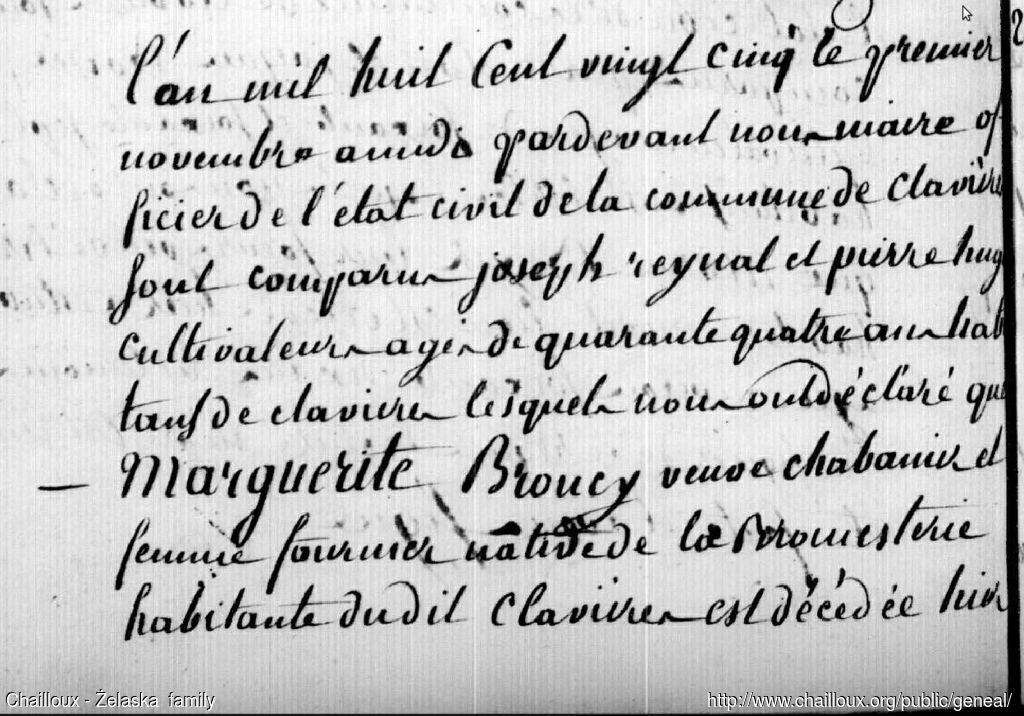 l'an mil huit cent vingt cinq le premier
novembre a midi pardevant nous maire of
ficier de l'état civil de la commune de claviere
sont comparus joseph reynal et pierre hug
cultivateurs agés de quarante quatre ans habi
tans de clavieres lesquels nous ont déclaré que
— Marguerite Broucy veuve chabanier et
femme fournier native de la Bromesterie
habitante dudit Clavieres est décédée hier
Chailloux - Żelaska family
http://www.chailloux.org/public/geneal/